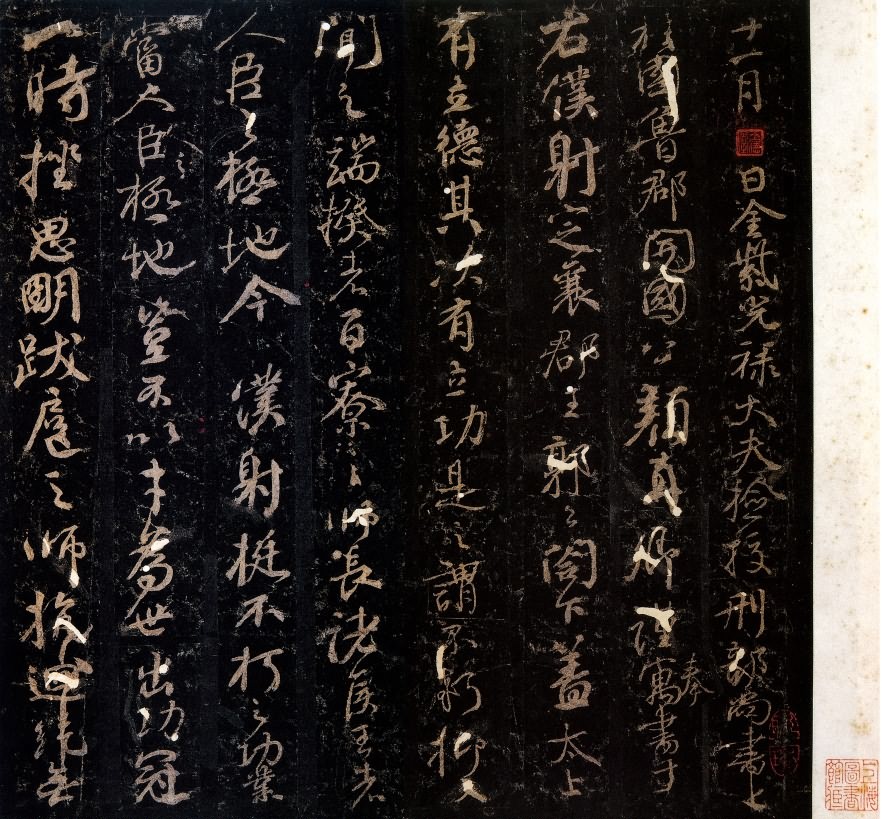 十一月 日金紫光禄大夫檢校刑部尚書上
柱國魯郡開國公顏真卿謹奉寓書于
右僕射定襄郡王郭公閤下蓋太上
有立德其次有立功是之謂不朽抑又
聞之端揆者百寮之師長諸侯王者
人臣之極地今僕射挺不朽之功業
當人臣之極地豈不以才為世出功冠
一時挫思明跋扈之師抗迴紇無
上海圖書館藏